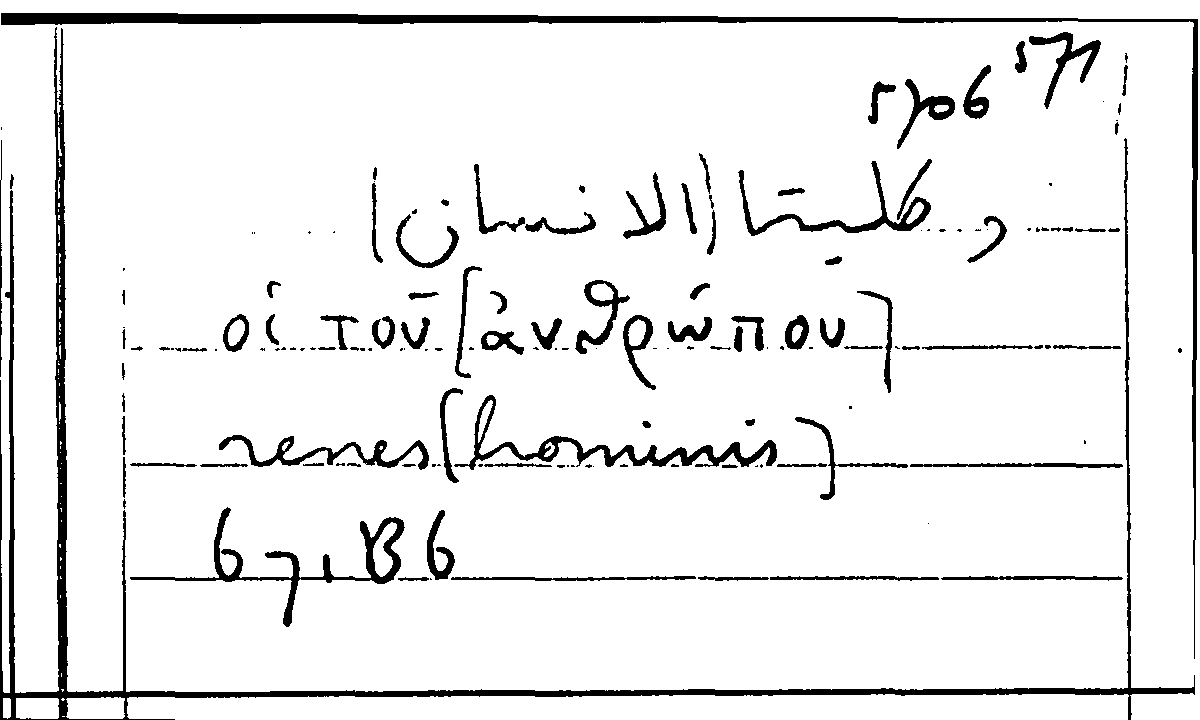 571
5706
وكليتا (الانسان)
οἱ τοῦ [ἀνθρώπου]
renes (hominis)
67, B6